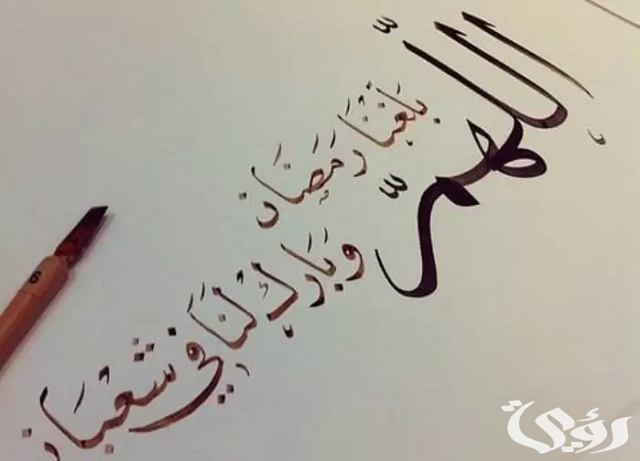 اللهمّ
بَلِّغْنَا رَمَضَان
وبَارِكْ لنَا في شَعْبَان
6
رؤية